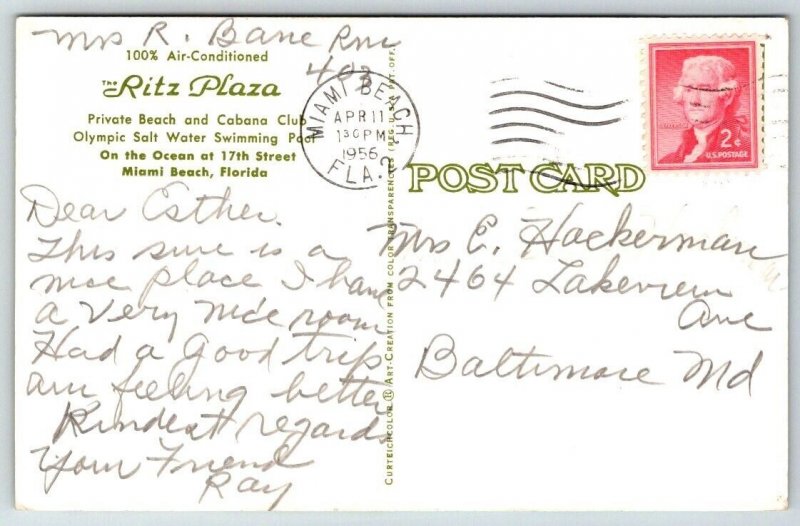 Mrs R. Bane Rm
402
100% Air-Conditioned
The Ritz Plaza
Private Beach and Cabana Club
Olympic Salt Water Swimming Pool
On the Ocean at 17th Street
Miami Beach, Florida
MIAMI BEACH,
APR 11
130 PM
1956
FLA.
2¢
U.S. POSTAGE
POST CARD
Dear Esther.
This sure is a
nice place I have
a very nice room
Had a good trip
am feeling better
Kindest regards
Your Friend
Ray
Mrs E. Hackerman
2464 Lakeview
Ave
Baltimore Md
CURTEICHCOLOR ® ART-CREATION FROM COLOR TRANSPARENCIES (REG. U.S.A. PAT. OFF.)